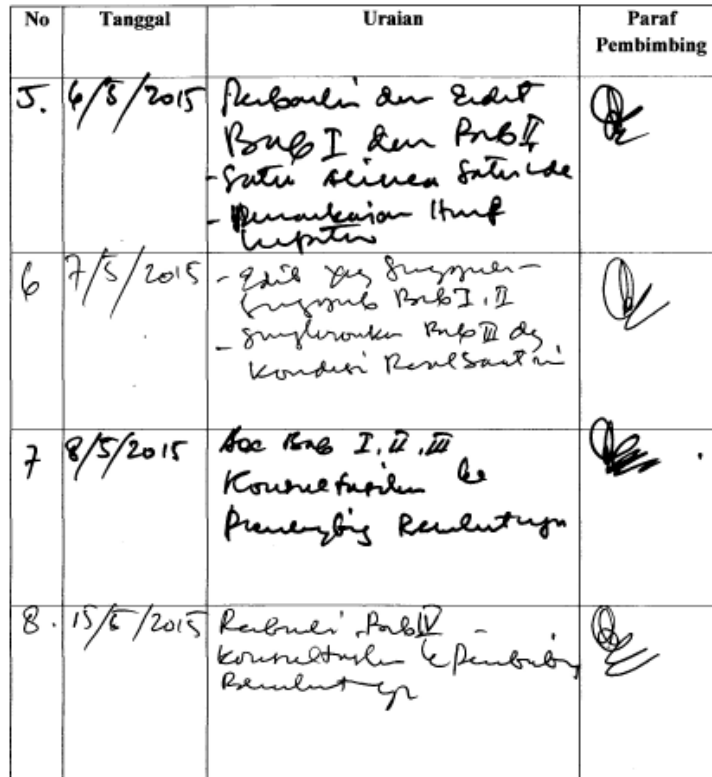 No Tanggal Uraian Paraf Pembimbing
5. 6/5/2015 Perbaiki dan Edit
Bab I dan Bab II
- Satu alinea Satu ide
- Pemakaian Huruf
6 7/5/2015 - Edit yg Sungguh-
Sungguh Bab I, II
- Singkronkan Bab III dg
Kondisi Real Saat ini
7 8/5/2015 Acc Bab I, II, III
Konsultasikan ke
Pembimbing Berikutnya
8. 15/5/2015 Perbaiki Bab IV -
Konsultasikan ke Pembimbing
Berikutnya